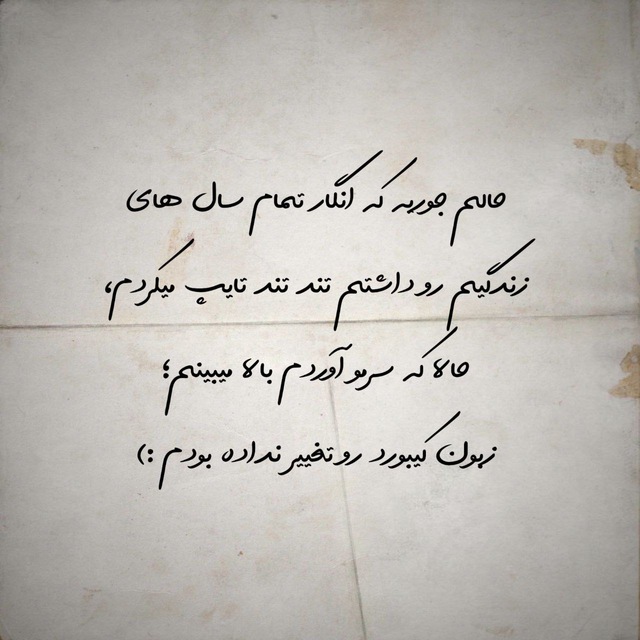 حالم جوریه که انگار تمام سال های
زندگیم رو داشتم تند تند تایپ میکردم،
حالا که سرمو آوردم بالا میبینم؛
زبون کیبورد رو تغییر نداده بودم :)